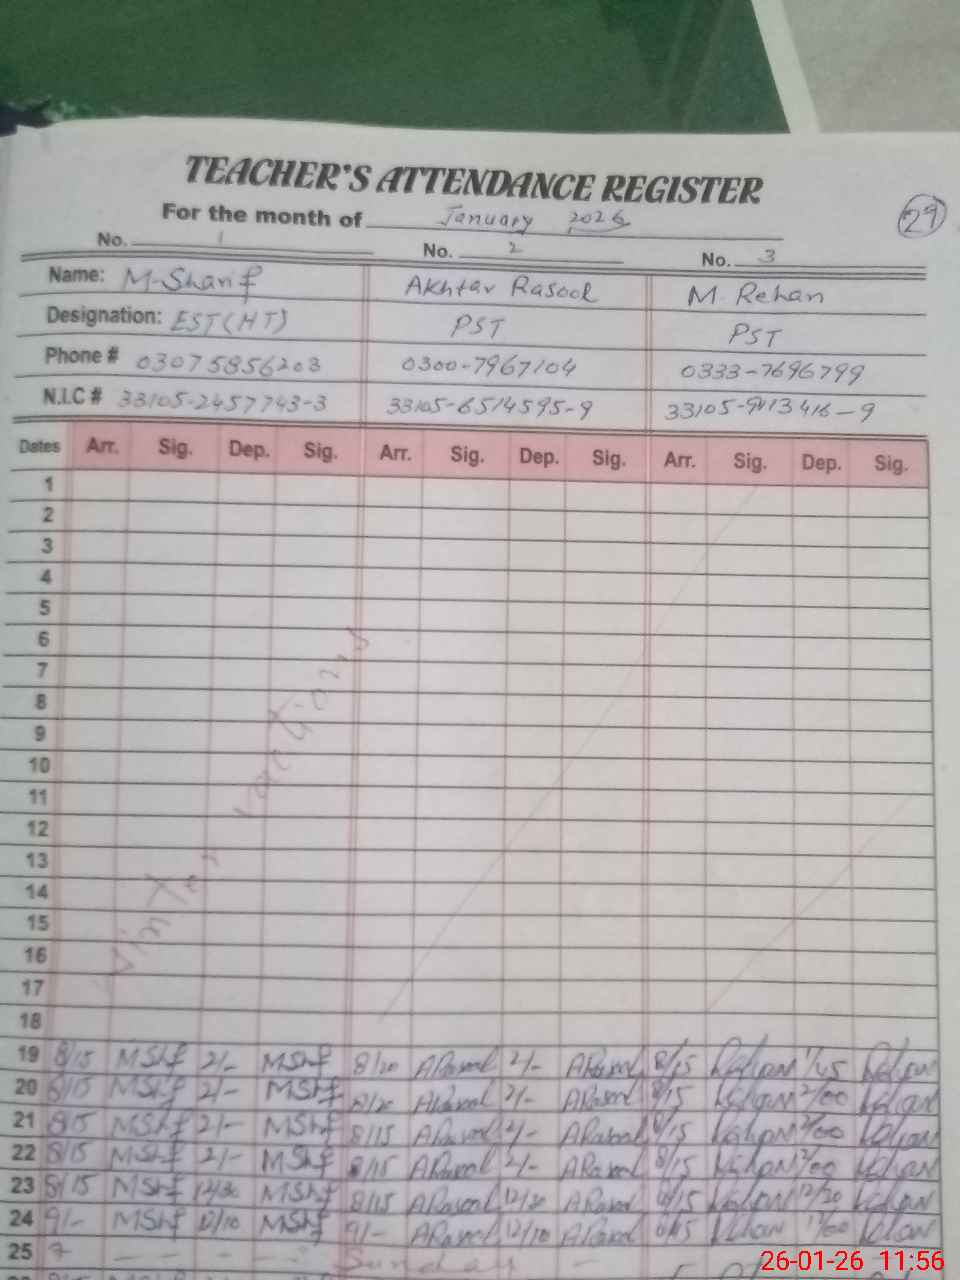 TEACHER'S ATTENDANCE REGISTER
For the month of January 2026
29
No. 1 No. 2 No. 3
Name: M-Sharif Akhtar Rasool M. Rehan
Designation: EST(HT) PST PST
Phone # 03075856203 0300-7967104 0333-7696799
N.I.C # 33105-2457743-3 33105-6514595-9 33105-9413416-9
Dates Arr. Sig. Dep. Sig. Arr. Sig. Dep. Sig. Arr. Sig. Dep. Sig.
1
2
3
4
5
6
7
8
9
10
11
12
13
14
15
16
17
18
winter vactions
19 8/15 MShf 2/- MShf 8/20 ARasool 2/- ARasool 8/15 Rehan 1/45 Rehan
20 8/15 MShf 2/- MShf 8/20 ARasool 2/- ARasool 8/15 Rehan 2/00 Rehan
21 8/15 MShf 2/- MShf 8/15 ARasool 2/- ARasool 8/15 Rehan 2/00 Rehan
22 8/15 MShf 2/- MShf 8/15 ARasool 2/- ARasool 8/15 Rehan 2/00 Rehan
23 8/15 MShf 12/30 MShf 8/15 ARasool 12/30 ARasool 8/15 Rehan 12/30 Rehan
24 9/- MShf 12/10 MShf 9/- ARasool 12/10 ARasool Rehan Rehan
25 Sunday
26-01-26 11:56